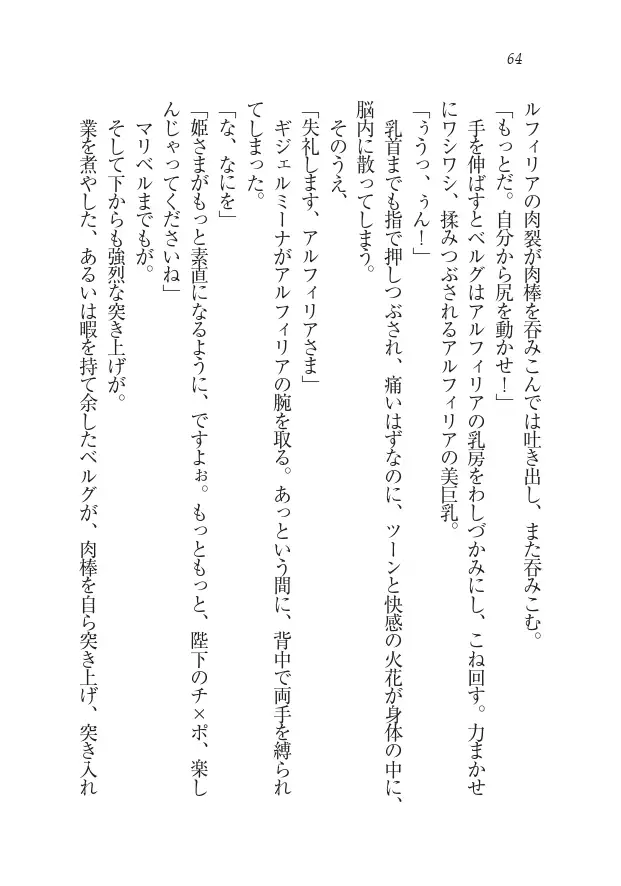 64
ルフィリアの肉裂が肉棒を呑みこんでは吐き出し、また呑みこむ。
「もっとだ。自分から尻を動かせ！」
手を伸ばすとベルグはアルフィリアの乳房をわしづかみにし、こね回す。力まかせ
にワシワシ、揉みつぶされるアルフィリアの美巨乳。
「ぅうっ、ぅん！」
乳首までも指で押しつぶされ、痛いはずなのに、ツーンと快感の火花が身体の中に、
脳内に散ってしまう。
そのうえ、
「失礼します、アルフィリアさま」
ギジェルミーナがアルフィリアの腕を取る。あっという間に、背中で両手を縛られ
てしまった。
「な、なにを」
「姫さまがもっと素直になるように、ですよぉ。もっともっと、陛下のチ×ポ、楽し
んじゃってくださいね」
マリベルまでもが。
そして下からも強烈な突き上げが。
業を煮やした、あるいは暇を持て余したベルグが、肉棒を自ら突き上げ、突き入れ